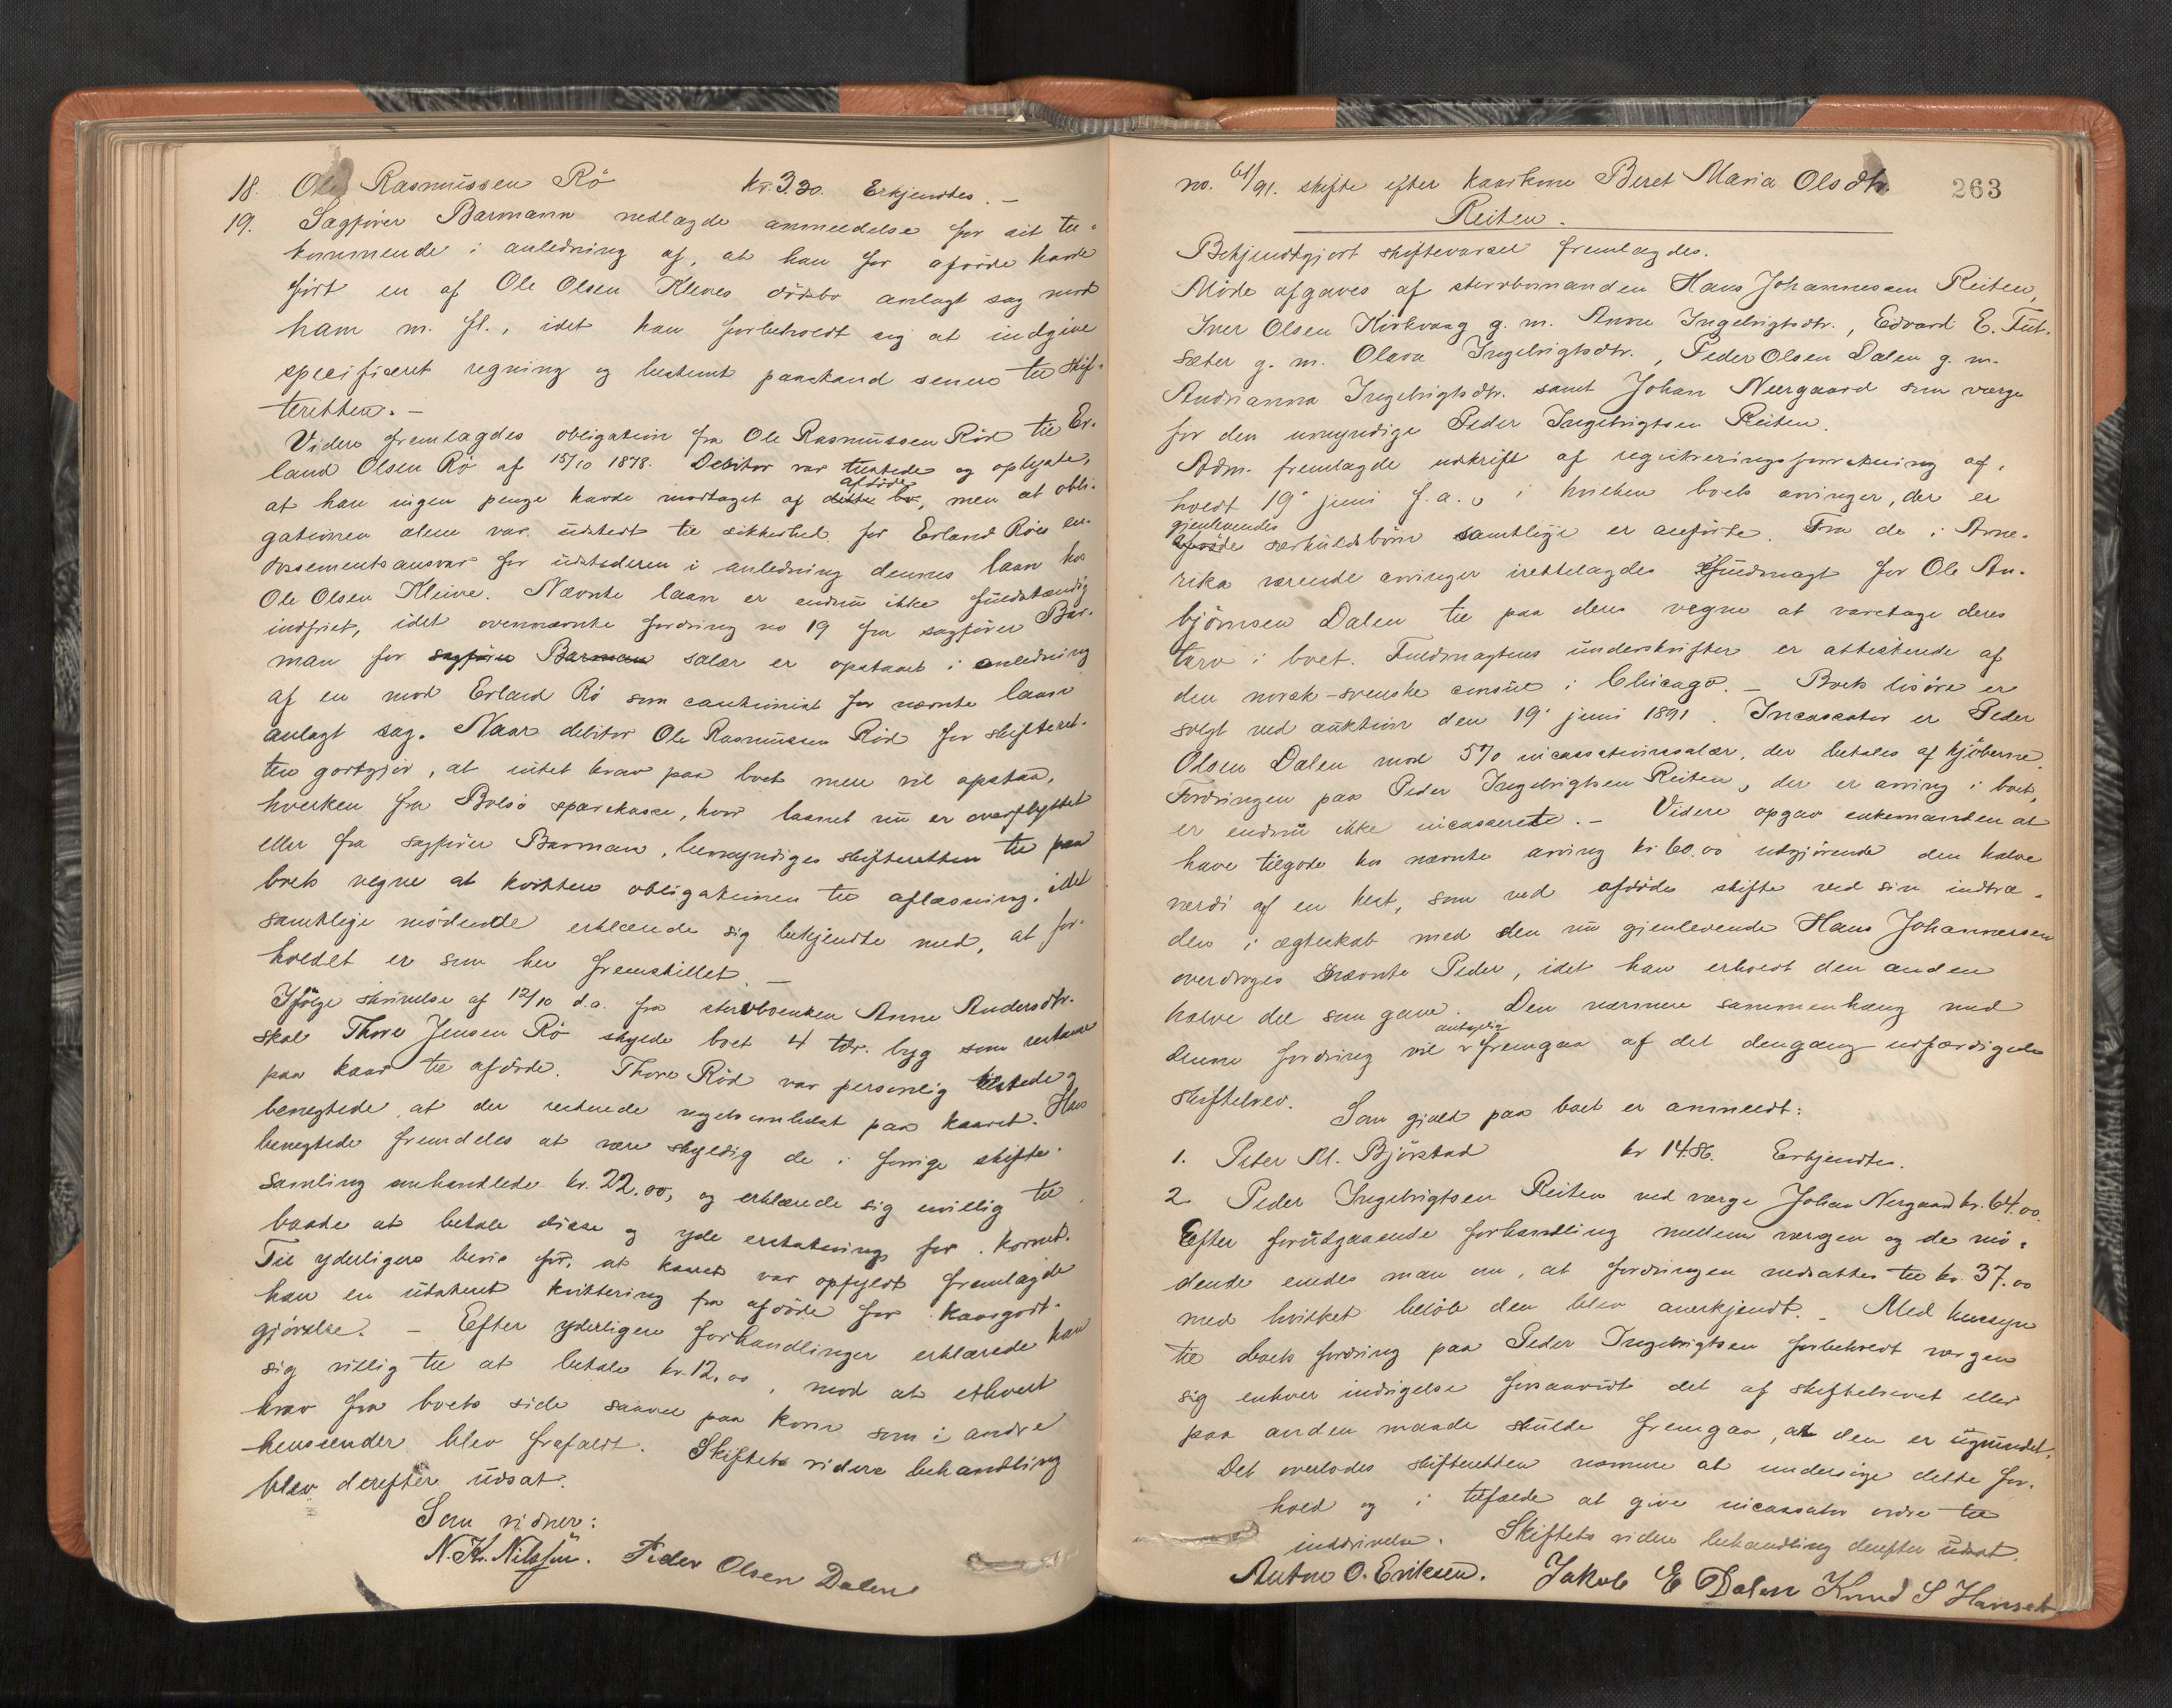 18. Ole Rasmussen Rö kr. 3.20. Erkjendtes. –
19. Sagförer Barmann nedlagde anmeldelse for sit til-
kommende i anledning af, at han for aföde havde
fört en af Ole Olsen Kleves dödsbo anlagt sag mod
ham m. fl., idet han forbeholdt sig at indgive
specificeret regning og bestemt paastand senere til skif-
teretten. –
Videre fremlagdes obligation fra Ole Rasmussen Röd til Er-
land Olsen Rö af 15/10 1878. Debitor var tilstede og oplyste,
at han ingen penge havde modtaget af dette bo, afdöde men at obli-
gationen alene var udstedt til sikkerhed for Erland Röes en-
dossementsansvar for udstederen i anledning dennes laan hos
Ole Olsen Kleive. Nævnte laan er endnu ikke fuldstændig
indfriet, idet ovennævnte fordring no 19 fra sagförer Bar-
man for sagförer Barman salær er opstaaet i anledning
af en mod Erland Rö som cautionist for nævnte laan
anlagt sag. Naar debitor Ole Rasmussen Röd for skifteret-
ten godtgjör, at intet krav paa boet mere vil opstaa,
hverken fra Bolsö sparekasse, hvor laanet nu er overflyttet
eller fra sagförer Barman, bemyndiges skifteretten til paa
boets vegne at kvittere obligationen til aflæsning, idet
samtlige mödende erklærede sig bekjendte med, at for-
holdet er som her fremstillet. –
Ifölge skrivelse af 12/10 d.a. fra sterbboenken Anne Andersdtr.
skal Thore Jensen Rö skylde boet 4 tdr. byg som restance
paa kaar til afdöde. Thore Röd var personlig tilstede og
benegtede, at der restede nogetsomhelst paa kaaret. Han
benegtede fremdeles at være skyldig de i forrige skifte-
samling omhandlede kr. 22.00, og erklærede sig uvillig til
baade at betale disse og yde erstatning for kornet.
Til yderligere bevis for, at kaaret var opfyldt fremlagde
han en udateret kvittering fra afdöde for kaargodt-
gjörelse. – Efter yderligere forhandlinger erklærede han
sig villig til at betale kr. 12.00, mod at ethvert
krav fra boets side saavel paa korn som i andre
henseender blev frafaldt. Skiftets videre behandling
blev derefter udsat.
Som vidner:
N. Kr. Nilssen. Peder Olsen Dalen
no. 61/91. skifte efter kaarkone Beret Maria Olsdtr. 263
Reiten.
Bekjendtgjort skiftevarsel fremlagdes.
Möde afgaves af sterbbomanden Hans Johannessen Reiten,
Iver Olsen Kirkvaag g. m. Anne Ingebrigtsdtr., Edvard E. Tut-
sæter g. m. Olava Ingebrigtsdtr., Peder Olsen Dalen g. m.
Andrianna Ingebrigtsdtr. samt Johan Neergaard som værge
for den umyndige Peder Ingebrigtsen Reiten.
Adm. fremlagde udskrift af registreringsforretning af-
holdt 19. juni f.a., i hvilken boets arvinger, der er
gjenlevendes afdöde særkuldsbörn samtlige er anförte. Fra de i Ame-
rika værende arvinger irettelagdes fuldmagt for Ole An-
björnsen Dalen til paa deres vegne at varetage deres
tarv i boet. Fuldmagtens underskrifter er attisterede af
den norsk-svenske consul i Chicago. – Boets lösöre er
solgt ved auktion den 19. juni 1891. Incassator er Peder
Olsen Dalen mod 5% incassationssalær, der betales af kjöberne.
Fordringen paa Peder Ingebrigtsen Reiten, der er arving i boet,
er endnu ikke incasserede. – Videre opgav enkemanden at
have tilgode hos nævnte arving kr 60.00 udgjörende den halve
værdi af en hest, som ved afdödes skifte ved sin indtræ-
den i ægteskab med den nu gjenlevende Hans Johannessen
overdroges nævnte Peder, idet han erholdt den anden
halve del som gave. Den nærmere sammenhæng med
denne fordring vil antagelig fremgaa af det dengang udfærdigede
skiftebrev.
Som gjæld paa boet er anmeldt:
1. Peter M. Björstad kr 14.86. Erkjendtes.
2. Peder Ingebrigtsen Reiten ved værge Johan Nergaard kr. 64.00.
Efter forudgaaende forhandling mellem værgen og de mö-
dende enedes man om, at fordringen nedsattes til kr. 37.00
med hvilket belöb den blev anerkjendt. – Med hensyn
til boets fordring paa Peder Ingebrigtsen forbeholdt værgen
sig enhver indsigelse forsaavidt det af skiftebrevet eller
paa anden maade skulde fremgaa, at den er ugrundet.
Det overlodes skifteretten nærmere at undersöge dette for-
hold og i tilfælde at give incassator ordre til
inddrivelse. Skiftets videre behandling derefter udsat.
Anton O. Eriksen. Jakob E Dalen Knud S Hanset